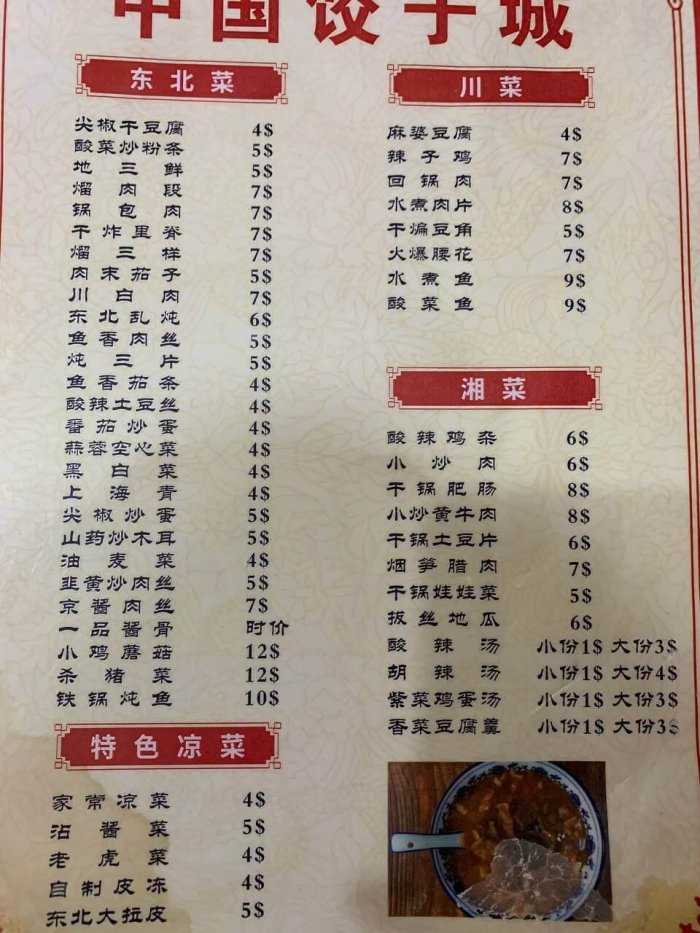 中国饺子城
东北菜
尖椒干豆腐 4$
酸菜炒粉条 5$
地三鲜 5$
熘肉段 7$
锅包肉 7$
干炸里脊 7$
熘三样 7$
肉末茄子 5$
川白肉 7$
东北乱炖 6$
鱼香肉丝 5$
炖三片 5$
鱼香茄条 4$
酸辣土豆丝 4$
番茄炒蛋 4$
蒜蓉空心菜 4$
黑白菜 4$
上海青 4$
尖椒炒蛋 5$
山药炒木耳 5$
油麦菜 4$
韭黄炒肉丝 5$
京酱肉丝 7$
一品酱骨 时价
小鸡蘑菇 12$
杀猪菜 12$
铁锅炖鱼 10$
特色凉菜
家常凉菜 4$
沾酱菜 5$
老虎菜 4$
自制皮冻 4$
东北大拉皮 5$
川菜
麻婆豆腐 4$
辣子鸡 7$
回锅肉 7$
水煮肉片 8$
干煸豆角 5$
火爆腰花 7$
水煮鱼 9$
酸菜鱼 9$
湘菜
酸辣鸡杂 6$
小炒肉 6$
干锅肥肠 8$
小炒黄牛肉 8$
干锅土豆片 6$
烟笋腊肉 7$
干锅娃娃菜 5$
拔丝地瓜 6$
酸辣汤 小份1$ 大份3$
胡辣汤 小份1$ 大份4$
紫菜鸡蛋汤 小份1$ 大份3$
香菜豆腐羹 小份1$ 大份3$